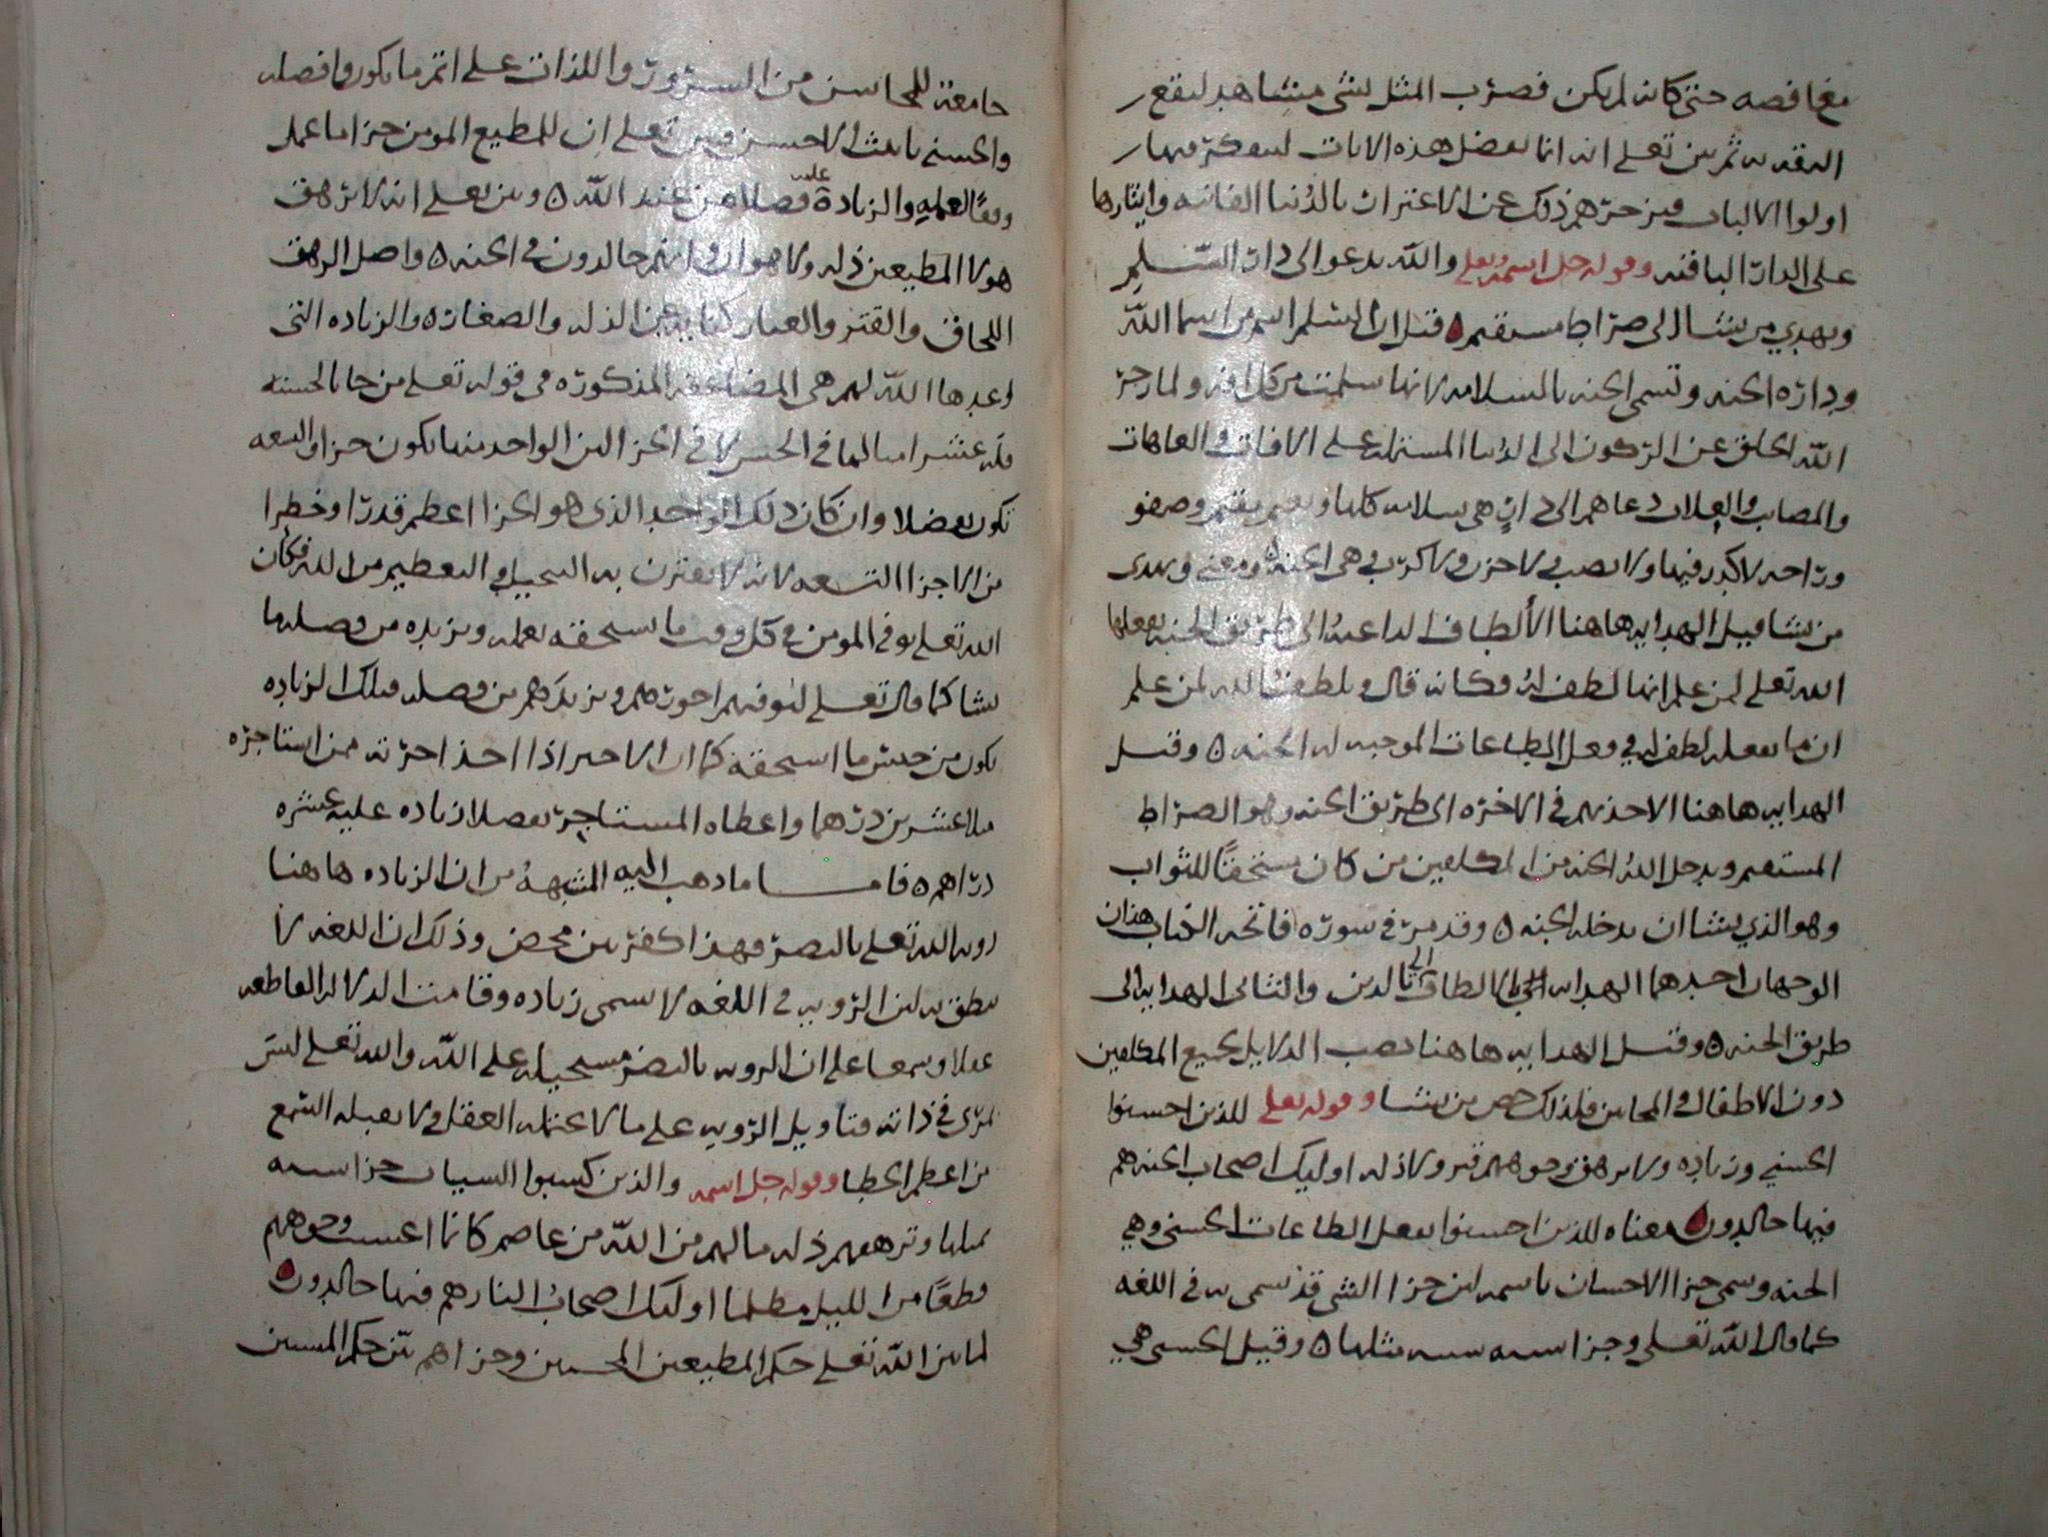 مغافصه حتى كانه لم يكن فضرب المثل بشي مشاهد ليقع
التقدير به ثم بين تعلى انه انما يفصل هذه الايات ليتفكر فيها
اولوا الالباب فيزجرهم ذلك عن الاغترار بالدُنيا الفانيه وايثارها
على الدار الباقيه وقوله جل اسمه وتعلى والله يدعوا الى دار السّلم
ويهدي من يشا الى صراط مستقيم ٥ قيل ان السلم اسم من اسما الله
وداره الجنه وتسمى الجنه بالسلامه لانها سلمت من كل افه ولما زجر
الله الخلق عن الركون الى الدنيا المشتمله على الافات والعاهات
والمصايب والعلات دعاهم الى دار هي سلامه كلها ونعيم مقيم وصفو
وراحه لا كدر فيها ولا نصب ولا حزن ولا كرب وهي الجنه ٥ ومعنى ويهدى
من يشا قيل الهدايه هاهنا الألطاف الداعيهُ الى طريق الجنه يفعلها
الله تعلى لمن علم انها لطف لهُ فكانه قال ويلطف الله لمن علم
ان ما يفعله لطف له في فعل الطاعات الموجبه له الجنه ٥ وقيل
الهدايه هاهنا الاخذ بهم في الاخره الى طريق الجنه وهو الصراط
المستقيم ويدخل اللهُ الجنه من المكلفين من كان مستحقًا للثواب
وهو الذي يشا ان يدخله الجنه ٥ وقد مر في سوره فاتحه الكتاب هذان
الوجهان احدهما الهدايه الى الالطاف بالدين والثانى الهدايه الى
طريق الجنه ٥ وقيل الهدايه هاهنا نصب الدلايل لجميع المكلفين
دون الاطفال والمجانين فلذلك خص من يشا وقوله تعلى للذين احسنوا
الحسنى وزياده ولا يرهق وجوههم قتر ولا ذله اوليك اصحاب الجنه هم
فيها خالدون ٥ معناه للذين احسنوا بفعل الطاعات الحسنى وهي
الجنه وسمى جزا الاحسان باسمه لان جزا الشي قد سمى به في اللغه
كما قال الله تعلى وجزا سيه سيه مثلها ٥ وقيل الحسنى هي
جامعة للمحاسن من السرور واللذات على اتم ما يكون وافضله
والحسنى تانيث الاحسن وبين تعلى ان للمطيع المومن جزا ما عمله
وفقًا لعمله والزيادة عليه فضلا من عند الله ٥ وبين تعلى انه لا يرهق
هولا المطيعين ذله ولا هوان وانهم خالدون في الجنه ٥ واصل الرهق
اللحاق والقتر والغبار كنايه عن الذله والصغاره والزياده التى
وعدها الله لهم هي المضاعفه المذكوره في قوله تعلى من جا بالحسنه
فله عشر امثالها في الجنس لا في الجزا لان الواحد منها يكون جزا والتسعه
تكون تفضلا وان كان ذلك الواحد الذى هو الجزا اعظم قدرًا وخطرا
من الاجزا التسعه لانه لا يقترن به التبجيل والتعظيم من الله فكان
الله تعلى يوفى المومن في كل وقت ما يستحقه بعمله ويزيده من فضله بما
يشا كما قال تعلى ليوفيهم اجورهم ويزيدهم من فضله فتلك الزياده
تكون من جنس ما استحقه كما ان الاجير اذا اخذ اجرته ممن استاجره
مثلا عشرين درهما واعطاه المستاجر تفضلا زياده عليه عشره
دراهم ٥ فاما ما ذهب اليه المشبههُ من ان الزياده هاهنا
رويه الله تعلى بالبصر فهذا كفر بين محض وذلك ان اللغه لا
تنطق به لان الرويه في اللغه لا تسمى زياده وقامت الدلاله القاطعه
عقلا وسمعا على ان الرويه بالبصر مستحيله على الله والله تعلى ليس
بمرئ في ذاته فتاويل الرويه على ما لا يحتمله العقل ولا يقبله السّمع
من اعظم الخطا وقوله جل اسمه والذين كسبوا السيات جزا سيه
بمثلها وترهقهم ذله ما لهم من الله من عاصم كانما اغشيت وجوههم
قطعًا من الليل مظلما اوليك اصحابُ النار هم فيها خالدون ٥
لما بين الله تعلى حكم المطيعين المحسنين وجزاهم بيّن حكم المسيين